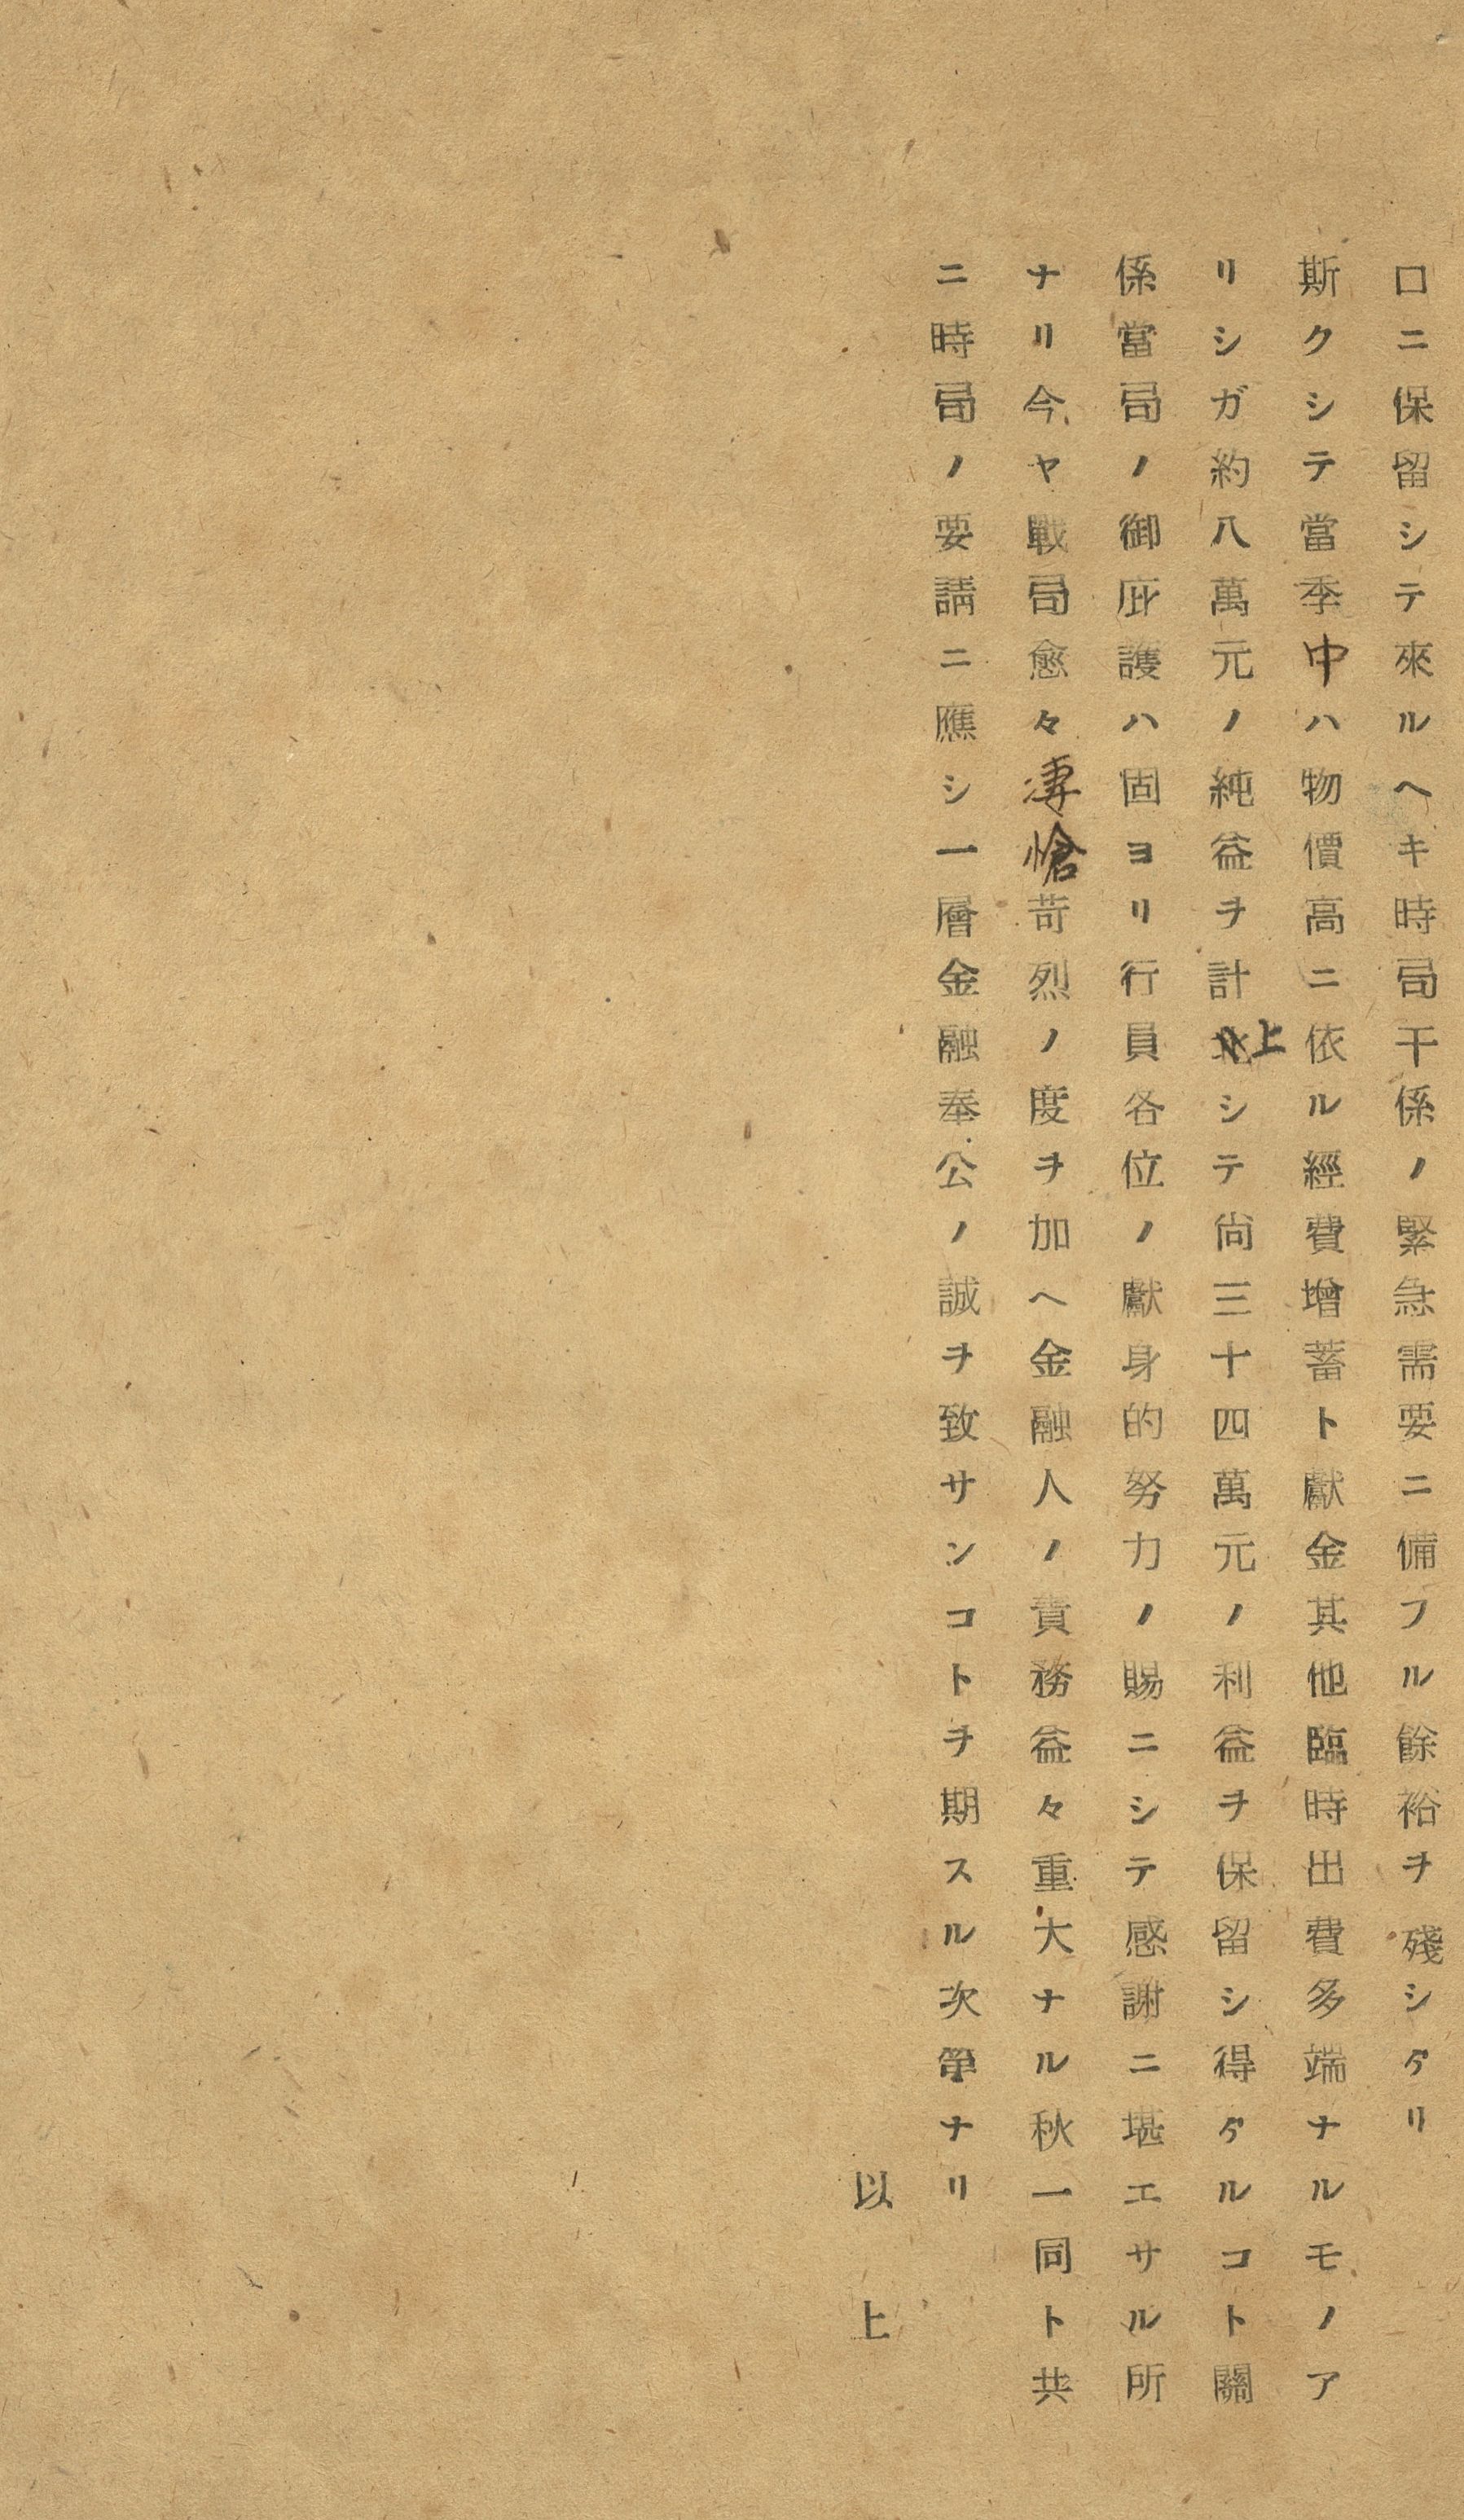 口ニ保留シテ來ルヘキ時局干係ノ緊急需要ニ備フル餘裕ヲ殘シタリ
斯クシテ當季中ハ物價高ニ依ル經費增蓄ト獻金其他臨時出費多端ナルモノア
リシガ約八萬元ノ純益ヲ計上シテ尙三十四萬元ノ利益ヲ保留シ得タルコト關
係當局ノ御庇護ハ固ヨリ行員各位ノ獻身的努力ノ賜ニシテ感謝ニ堪エサル所
ナリ今ヤ戰局愈々凄愴苛烈ノ度ヲ加ヘ金融人ノ責務益々重大ナル秋一同ト共
ニ時局ノ要請ニ應シ一層金融奉公ノ誠ヲ致サンコトヲ期スル次第ナリ
以上